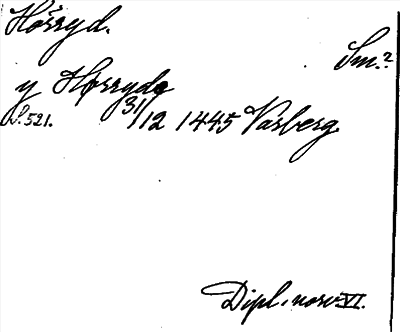 Hörryd.
Sm.?
y Hørrydø
S. 521. 31/12 1445 Varberg
Dipl. norv. VI.